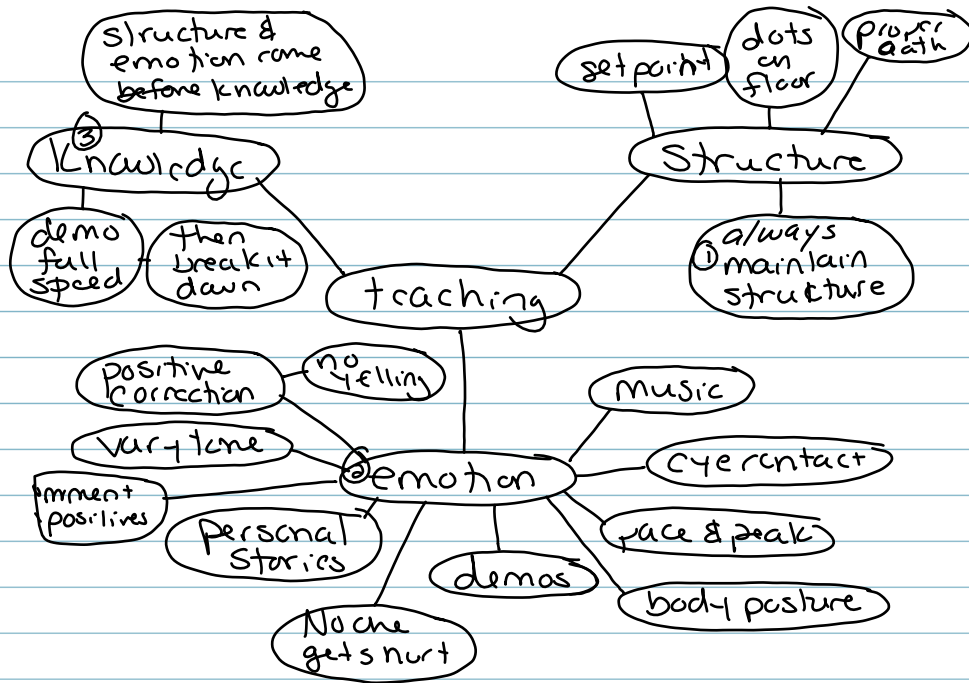 structure &
emotion come
before knowledge
③
Knowledge
demo
full
speed
then
break it
down
setpoint
dots
on
floor
proper
path
Structure
① always
maintain
structure
teaching
positive
correction
no
yelling
vary tone
comment
positives
② emotion
personal
stories
No one
gets hurt
demos
music
eye contact
pace & peak
body posture